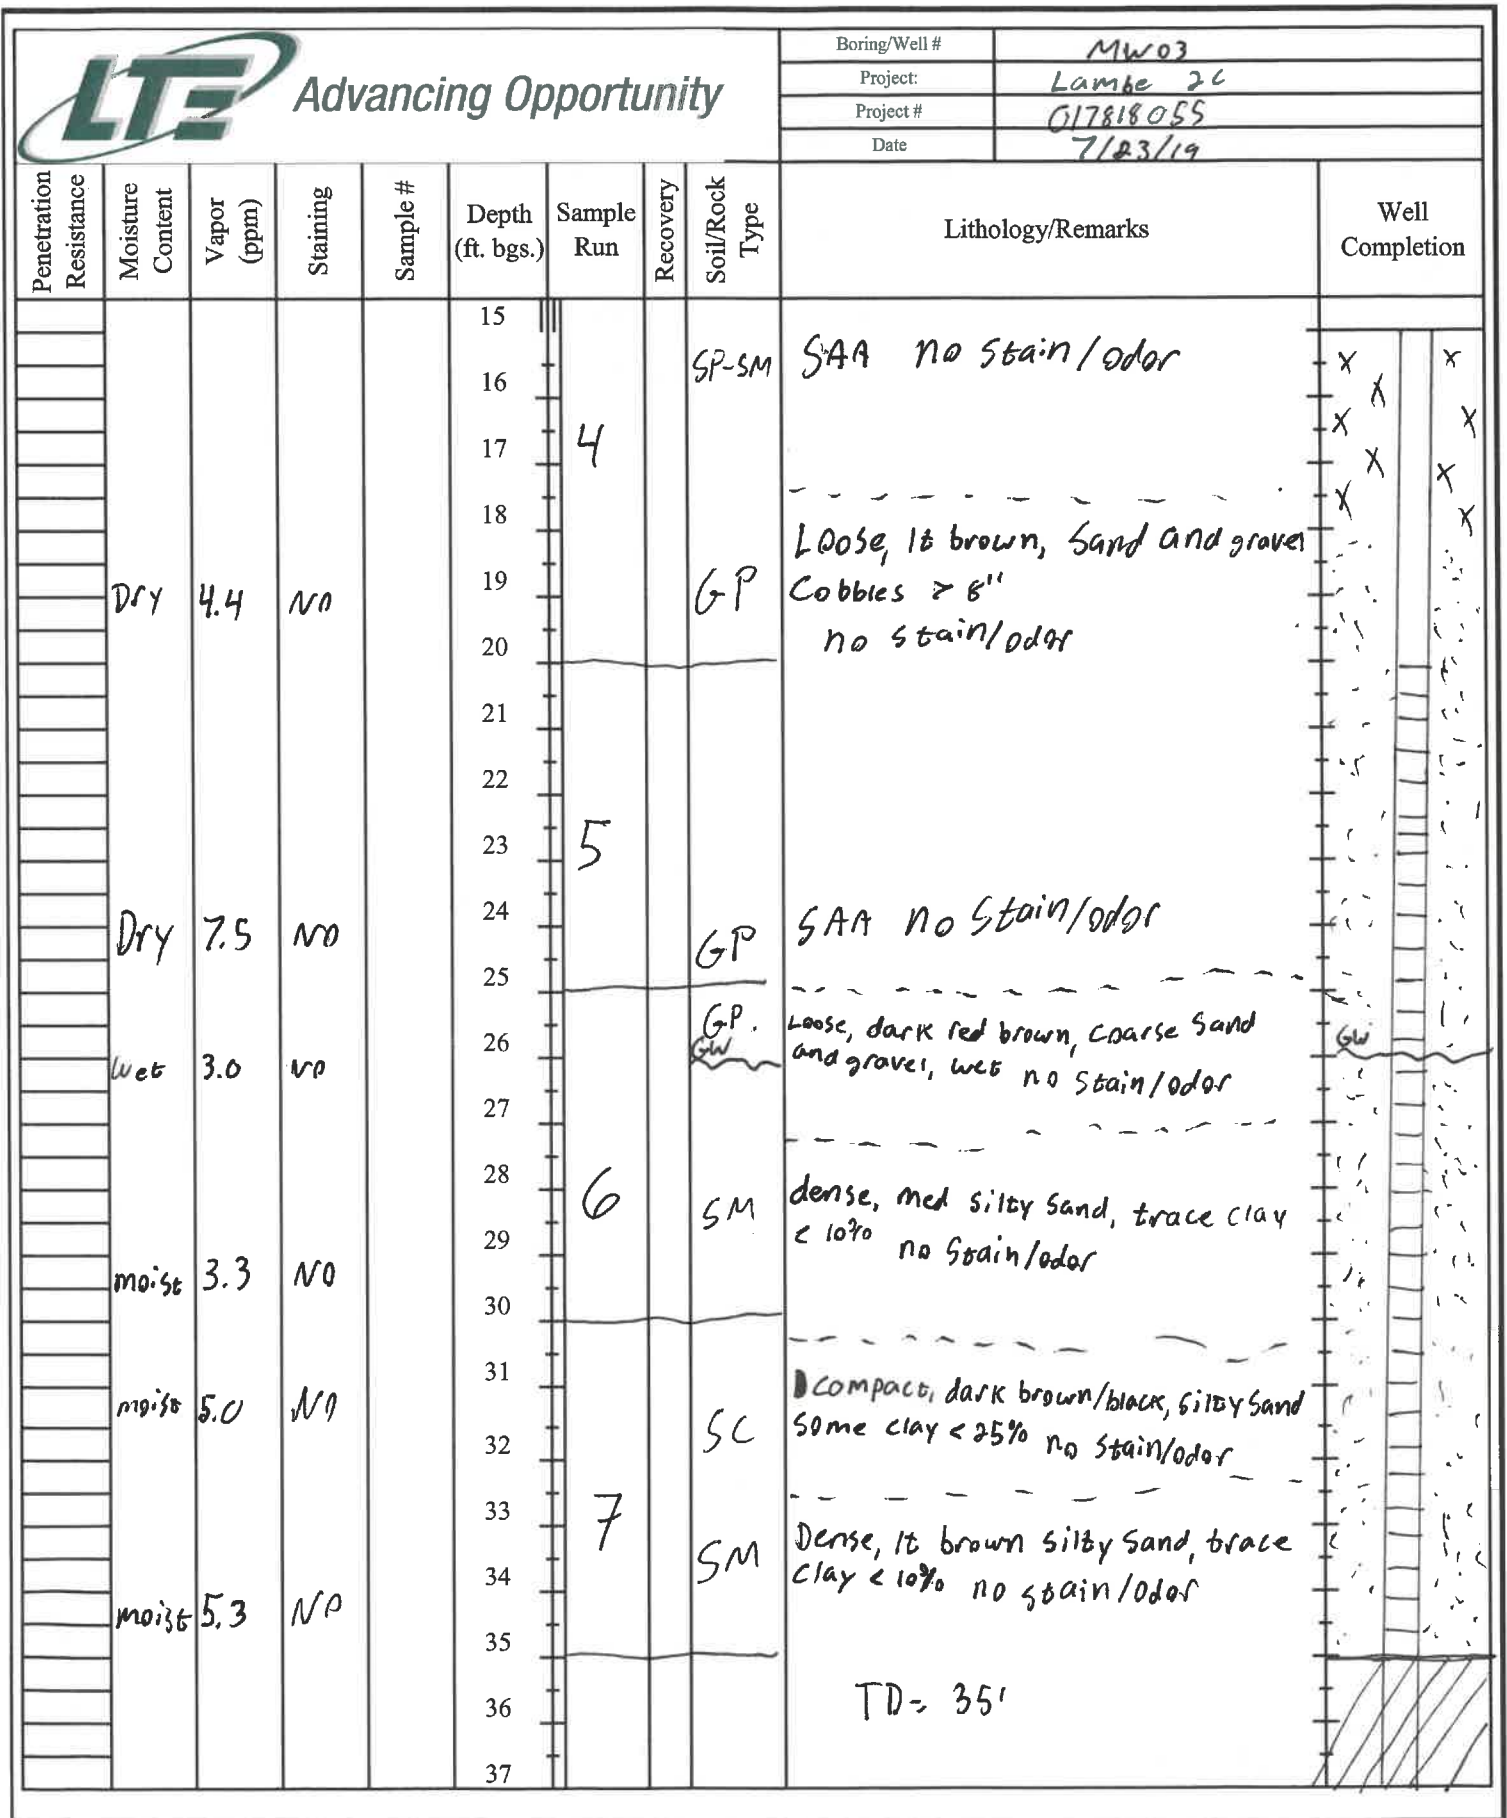 LTE Advancing Opportunity
Boring/Well # MW03
Project: Lambe 2C
Project # 017818055
Date 7/23/19
Penetration Resistance
Moisture Content
Vapor (ppm)
Staining
Sample #
Depth (ft. bgs.)
Sample Run
Recovery
Soil/Rock Type
Lithology/Remarks
Well Completion
15
SP-SM SAA no stain/odor
16
17 4
18
Loose, lt brown, Sand and gravel
Dry 4.4 NO 19 GP Cobbles > 8"
no stain/odor
20
21
22
23 5
24 SAA no stain/odor
Dry 7.5 NO GP
25
GP. Loose, dark red brown, coarse sand
26 GW and gravel, wet no stain/odor GW
Wet 3.0 NO
27
28 6 SM dense, med silty sand, trace clay
29 < 10% no stain/odor
moist 3.3 NO
30
31 compact, dark brown/black, silty sand
moist 5.0 NO SC some clay < 25% no stain/odor
32
33 7
Dense, lt brown silty sand, trace
34 SM clay < 10% no stain/odor
moist 5.3 NO
35
36 TD= 35'
37